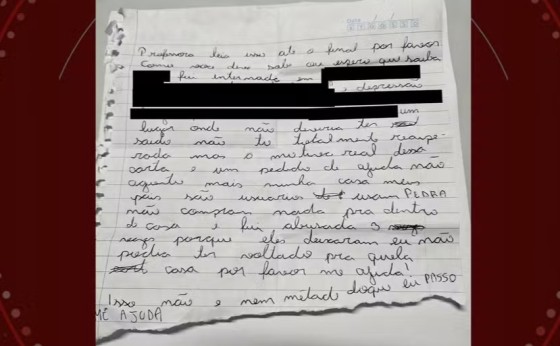 Professora leia isso até o final por favor
Como você deve saber ou espero que saiba
fui internada em
e depressão
um
lugar onde não deveria ter
saido não to totalmente recupe-
rada mas o motivo real dessa
carta e um pedido de ajuda não
aguento mais minha casa meus
pais são usuarios usam PEDRA
não compram nada pra dentro
de casa e fui abusada 3
vezes porque eles deixaram eu não
podia ter voltado pra quela
casa por favor me ajuda!
Isso não e nem métade doque eu PASSO
ME AJUDA